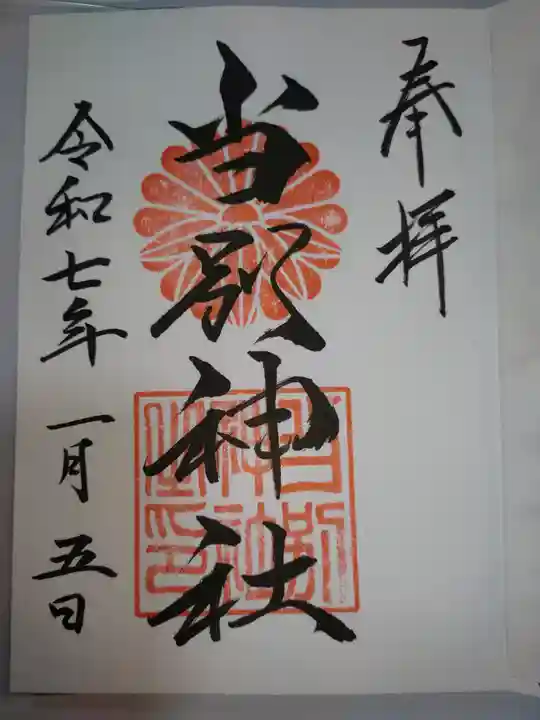 奉拝
当別神社
令和七年一月五日